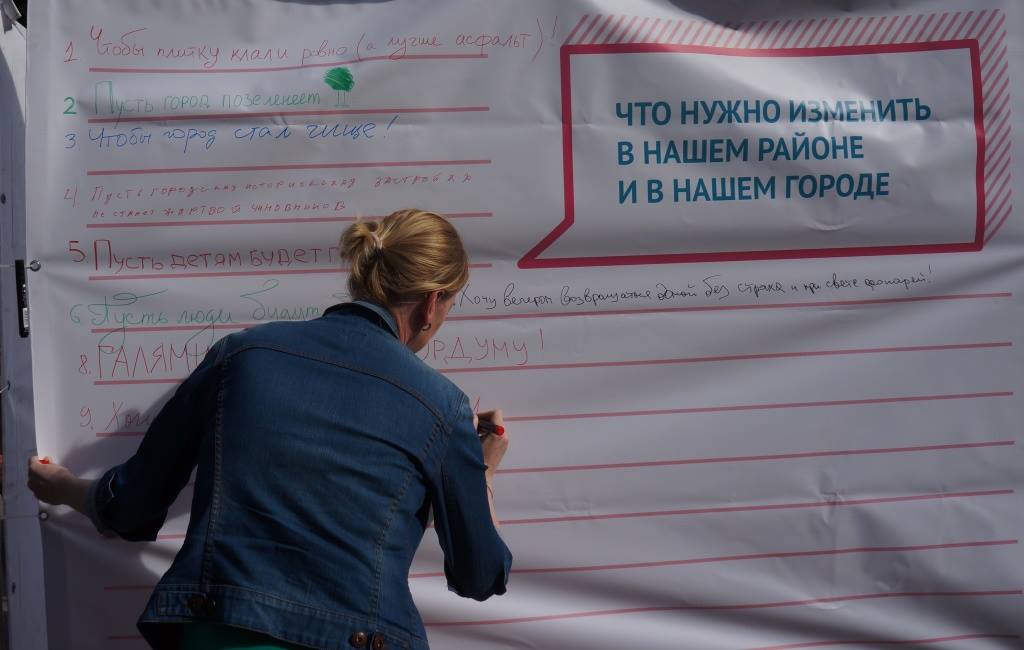 1 Чтобы плитку клали ровно (а лучше асфальт)!
2 Пусть город позеленеет
3. Чтобы город стал чище!
4) Пусть городская историческая застройка
не станет жертвой чиновников
5. Пусть детям будет
6 Пусть люди
Хочу вечером возвращаться домой без страха и при свете фонарей!
8.
9.
ЧТО НУЖНО ИЗМЕНИТЬ
В НАШЕМ РАЙОНЕ
И В НАШЕМ ГОРОДЕ